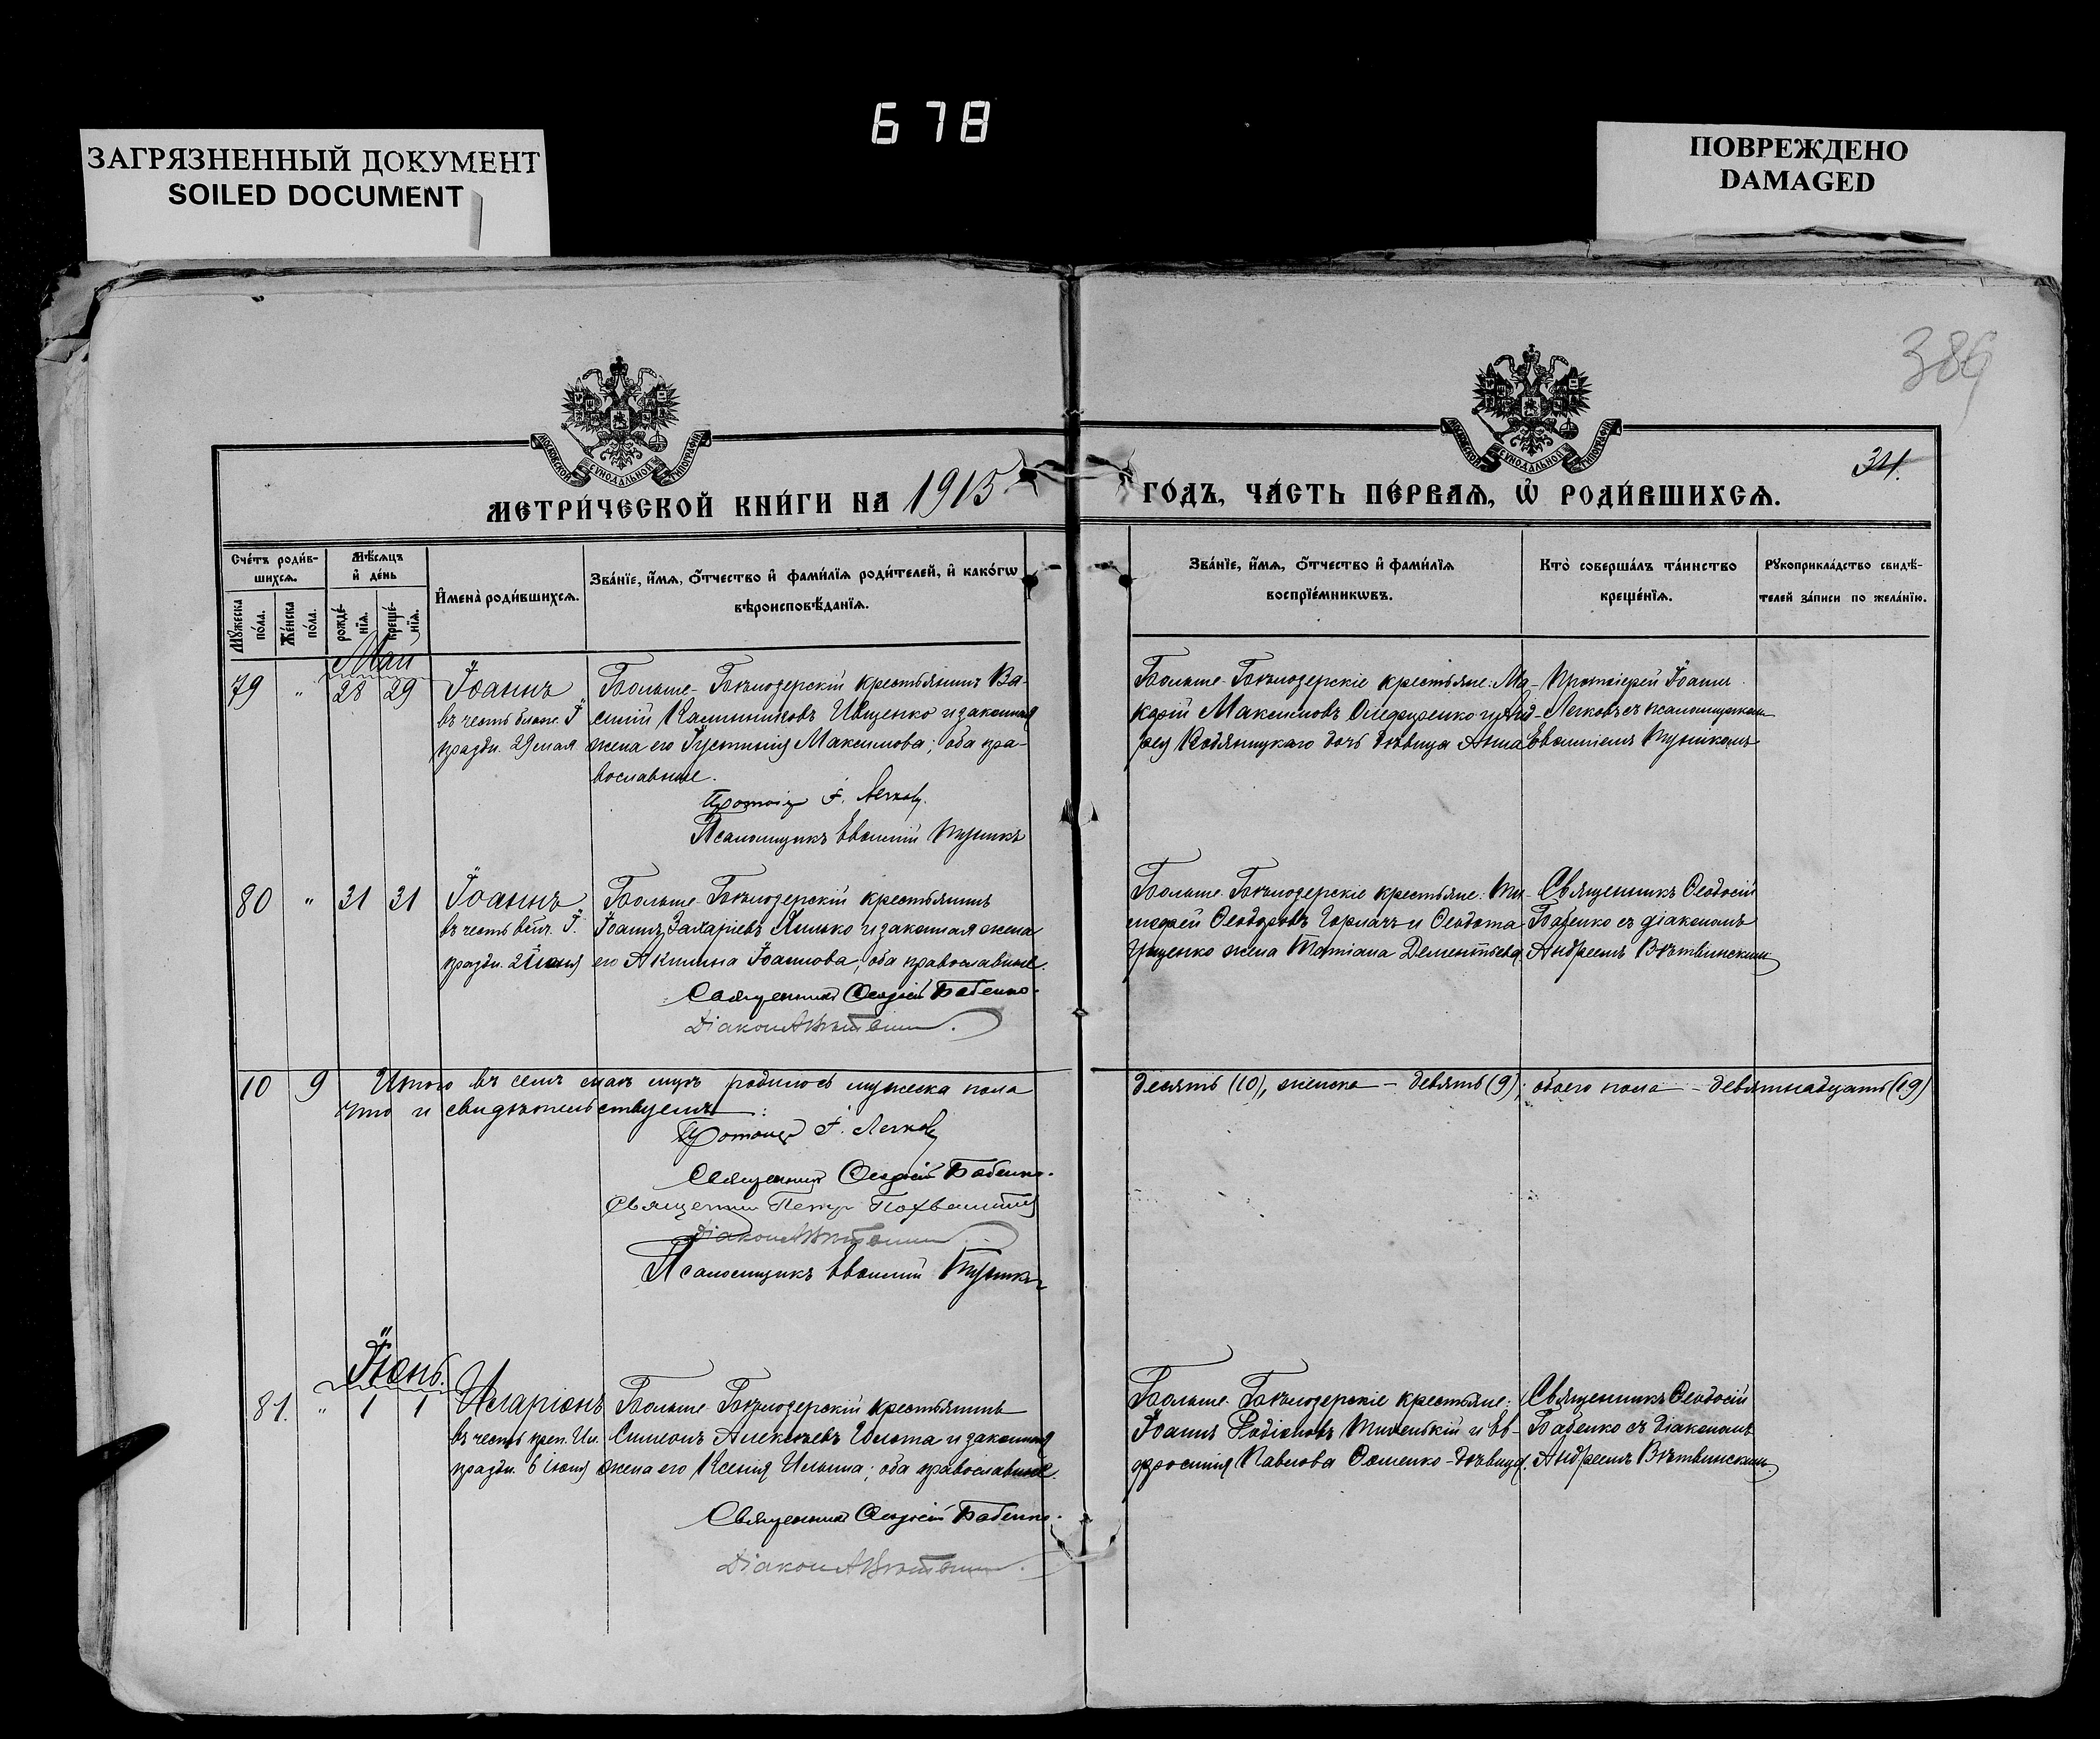 678
ЗАГРЯЗНЕННЫЙ ДОКУМЕНТ
SOILED DOCUMENT
ПОВРЕЖДЕНО
DAMAGED
389
34.
МОСКОВСКОЙ СѴНОДАЛЬНОЙ ТИПОГРАФІИ
МОСКОВСКОЙ СѴНОДАЛЬНОЙ ТИПОГРАФІИ
МЕТРИ́ЧЕСКОЙ КНИ́ГИ НА 1915
ГО́ДЪ, ЧА́СТЬ ПЕ́РВАѦ, Ѡ҆ РОДИ́ВШИХСѦ.
Сче́тъ роди́в-
шихсѧ.
Мꙋ́жеска
по́ла.
Же́нска
по́ла.
Мѣ́сѧцъ
и҆ де́нь
рожде́-
нїѧ.
креще́-
нїѧ.
И҆мена̀ роди́вшихсѧ.
Зва́нїе, и҆́мѧ, ѻ҆́тчество и҆ фами́лїѧ роди́телей, и҆ како́гѡ
вѣроисповѣ́данїѧ.
Зва́нїе, и҆́мѧ, ѻ҆́тчество и҆ фами́лїѧ
воспрїе́мникѡвъ.
Кто̀ соверша́лъ та́инство
креще́нїѧ.
Рꙋкоприкла́дство свидѣ́-
телей за́писи по жела́нїю.
Май
79 " 28 29 Іоаннъ
въ честь блаж. І.
праздн. 29 мая
Больше-Бѣлозерскій крестьянинъ Ва-
силій Калинниковъ Иващенко и законная
жена его Іустинія Максимова; оба пра-
вославные.
Протоіер. І. Легковъ.
Псаломщикъ Евѳимій
Больше-Бѣлозерскіе крестьяне: Ма-
карій Максимовъ и Анд-
рея дочь дѣвица Анна
Протоіерей Іоаннъ
Легковъ съ псаломщикомъ
Евѳиміемъ
80 " 31 31 Іоаннъ
въ честь І.
праздн. 2 іюня
Больше-Бѣлозерскій крестьянинъ
Іоаннъ Захаріевъ Хилько и законная жена
его Акилина Іоаннова; оба православные.
Священникъ Ѳеодосій Бабенко.
Діаконъ А Вѣтвинскій.
Больше-Бѣлозерскіе крестьяне: Ти-
моѳей Ѳеодоровъ Горпачъ и Ѳеодота
Гращенко жена Татіана Дементьева.
Священникъ Ѳеодосій
Бабенко съ діакономъ
Андреемъ Вѣтвинскимъ
10 9 Итого въ семъ мая мцѣ родилось мужеска пола
десять (10), женска - девять (9); обоего пола - девятнадцать (19)
что и свидѣтельствуемъ:
Протоіер. І. Легковъ
Священникъ Ѳеодосій Бабенко.
Священникъ Петръ
Діаконъ А Вѣтвинскій.
Псаломщикъ Евѳимій
Іюнь.
81. " 1 1 Иларіонъ
въ честь преп. Ил.
праздн. 6 іюня
Больше-Бѣлозерскій крестьянинъ
Симеонъ Алексѣевъ и законная
жена его Ксенія Ильина; оба православные.
Священникъ Ѳеодосій Бабенко.
Діаконъ А Вѣтвинскій.
Больше-Бѣлозерскіе крестьяне:
Іоаннъ Родіоновъ и Ев-
фросинія Павлова - дѣвица.
Священникъ Ѳеодосій
Бабенко съ діакономъ
Андреемъ Вѣтвинскимъ.